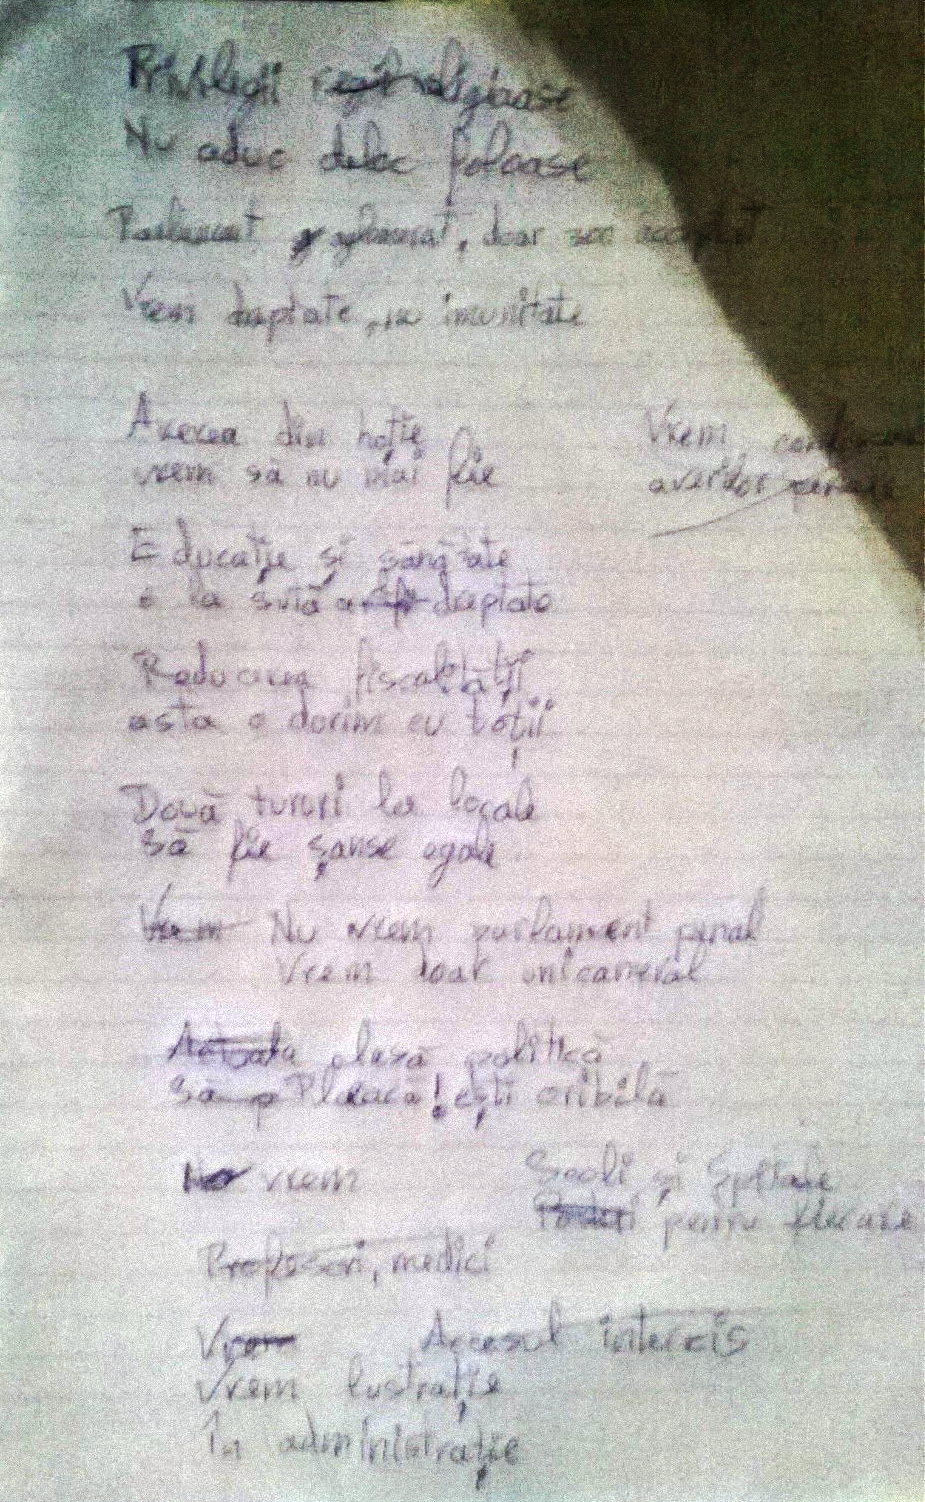 Privilegii religioase
Nu aduc deloc foloase
Parlament, doar acceptat
Vrem dreptate, nu imunitate
Averea din hoție
vrem să nu mai fie
Vrem
averilor
Educație și sănătate
e la sută dreptate
Reducerea fiscalității
asta o dorim cu toții
Două tururi la locale
Să fie șanse egale
Vrem Nu vrem parlament penal
Vrem doar unicameral
clasă politică
Să p Pleacă! ești oribilă
Nu vrem
Școli și Spitale
pentru fiecare
Profesori, medici
Vrem Accesul interzis
Vrem lustrație
În administrație